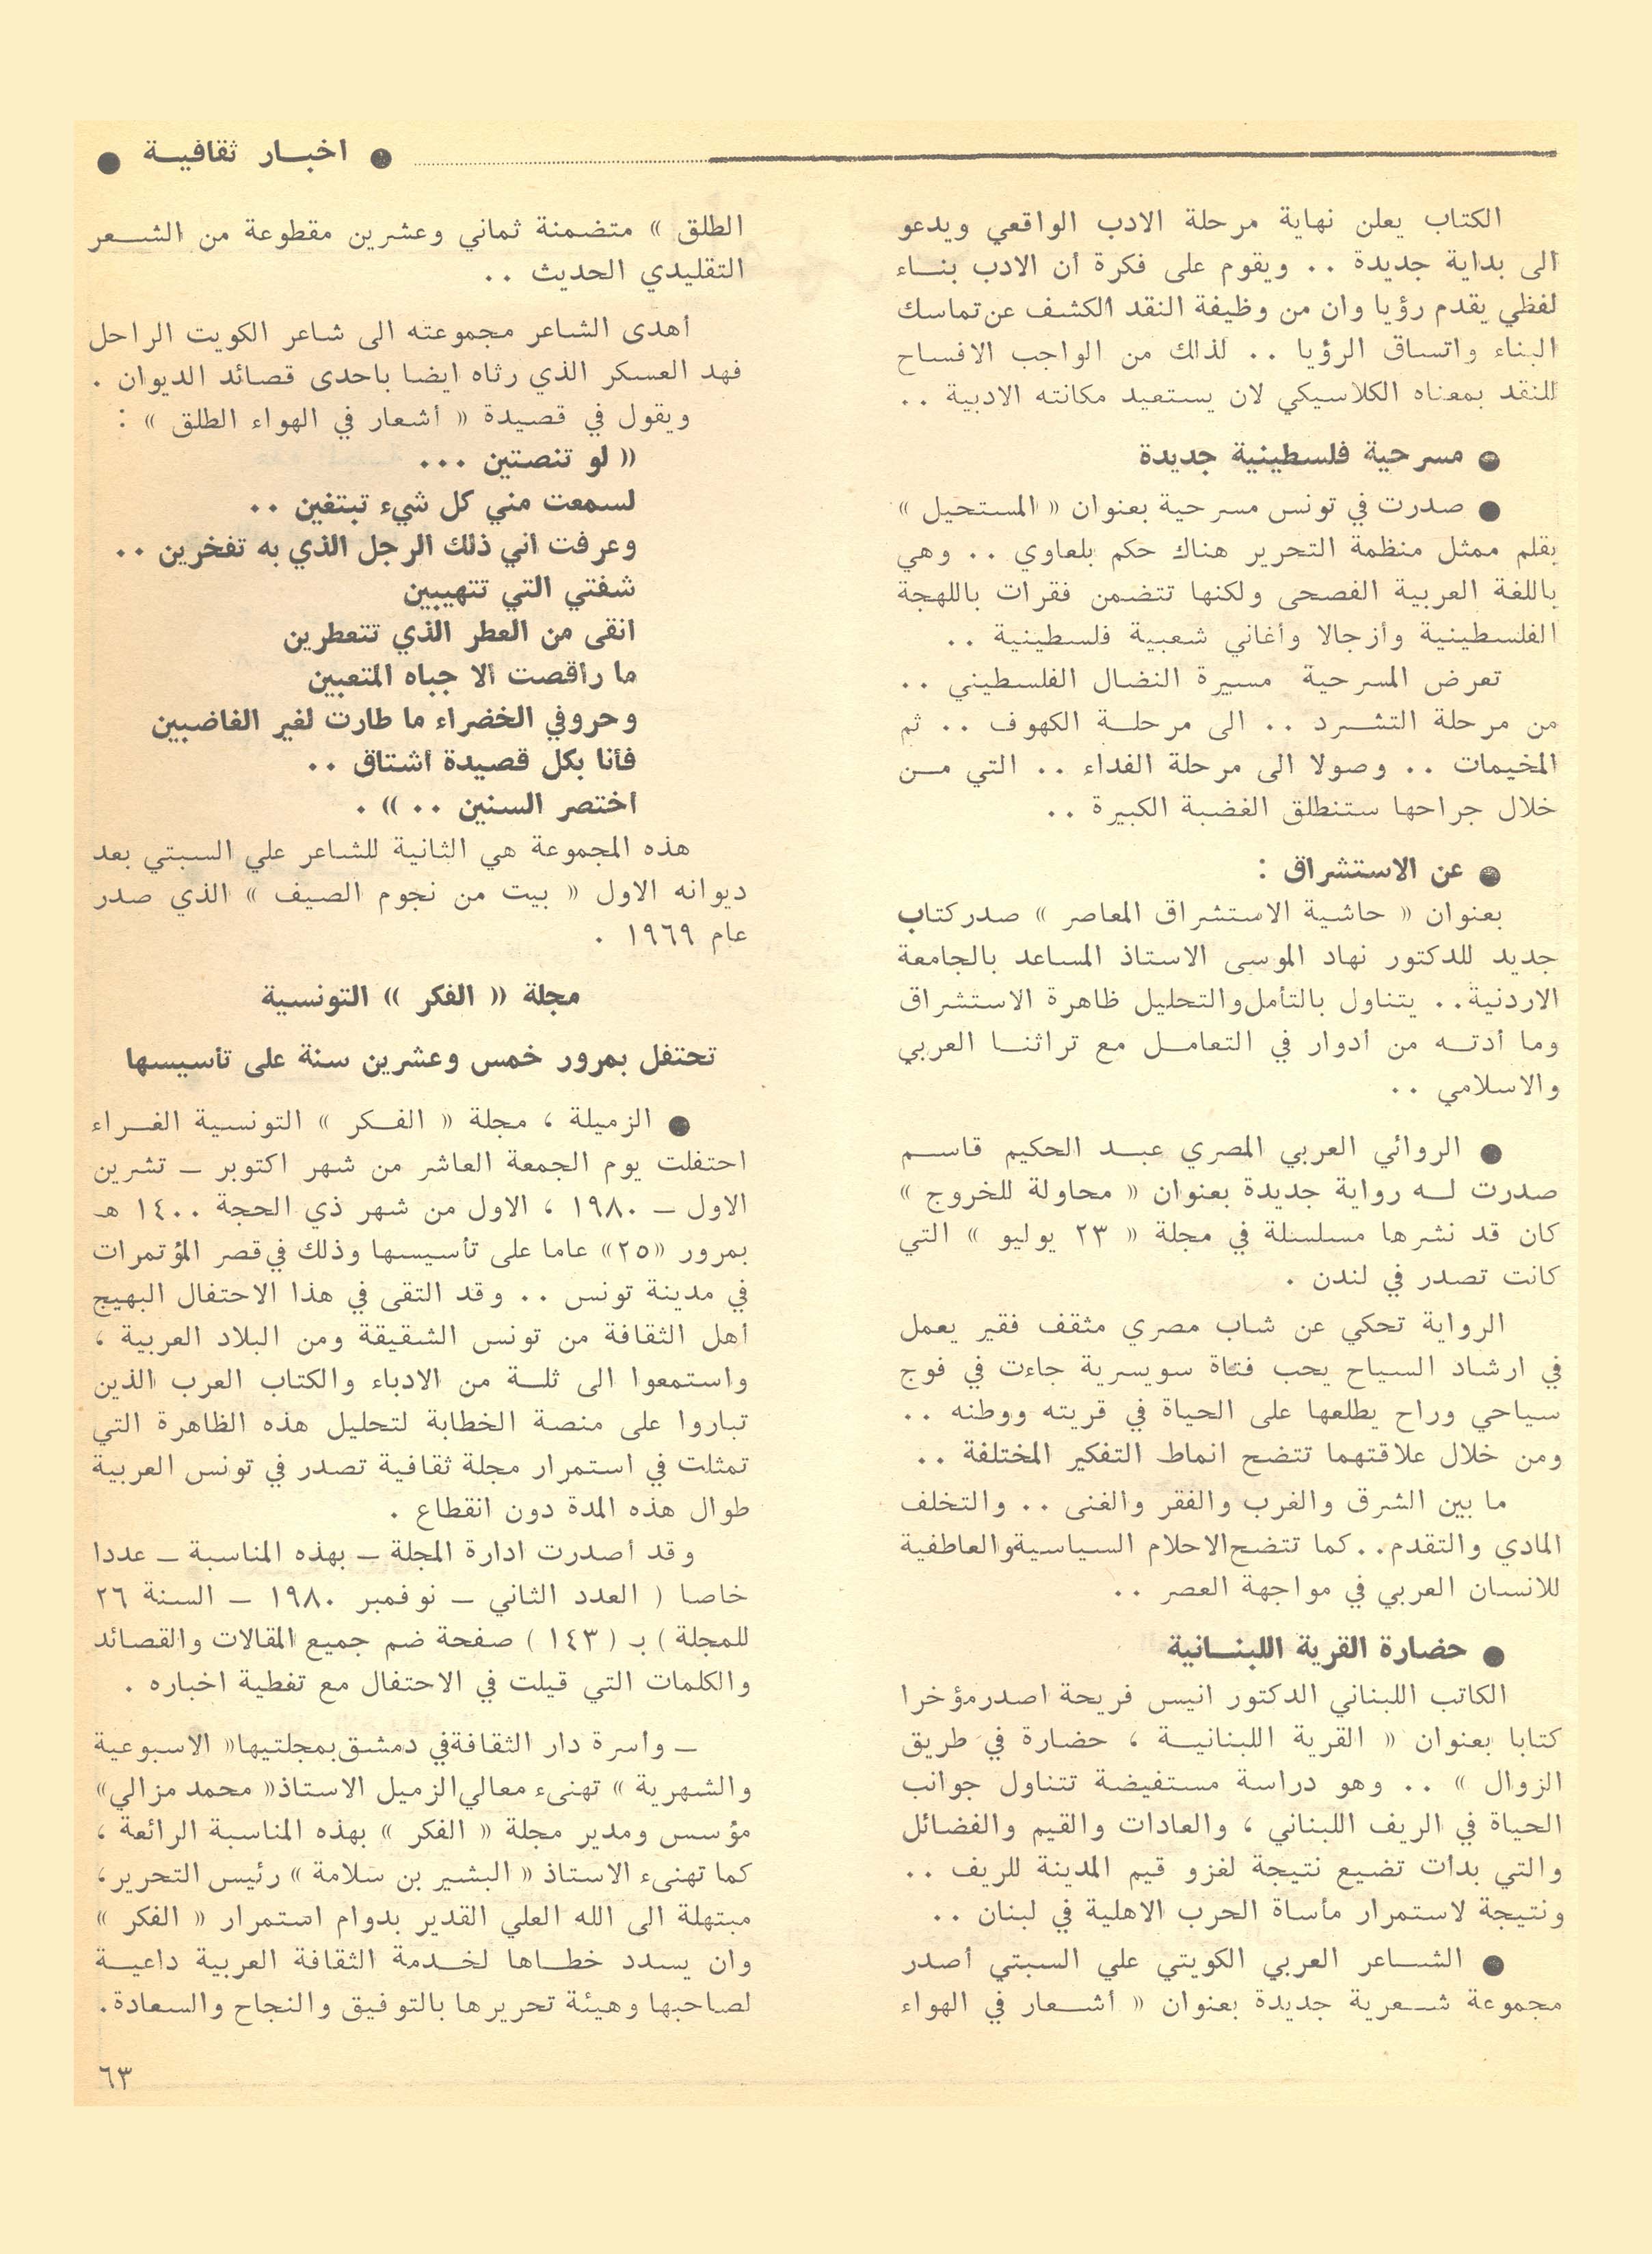 ● اخبـار ثقافيـة ●
الكتاب يعلن نهاية مرحلة الادب الواقعي ويدعو
الى بداية جديدة .. ويقوم على فكرة أن الادب بنـاء
لفظي يقدم رؤيا وان من وظيفة النقد الكشف عن تماسك
البناء واتساق الرؤيا .. لذلك من الواجب الافساح
للنقد بمعناه الكلاسيكي لان يستعيد مكانته الادبية ..
● مسرحية فلسطينية جديدة
● صدرت في تونس مسرحية بعنوان « المستحيل »
بقلم ممثل منظمة التحرير هناك حكم بلعاوي .. وهي
باللغة العربية الفصحى ولكنها تتضمن فقرات باللهجة
الفلسطينية وأزجالا وأغاني شعبية فلسطينية ..
تعرض المسرحية مسيرة النضال الفلسطيني ..
من مرحلة التشـرد .. الى مرحلـة الكهوف .. ثم
المخيمات .. وصولا الى مرحلة الفداء .. التي مـن
خلال جراحها ستنطلق الغضبة الكبيرة ..
● عن الاستشراق :
بعنوان « حاشية الاستشراق المعاصر » صدر كتاب
جديد للدكتور نهاد الموسى الاستاذ المساعد بالجامعة
الاردنية .. يتناول بالتأمل والتحليل ظاهرة الاستشراق
وما أدتـه من أدوار في التعامـل مع تراثنـا العربي
والاسلامي ..
● الروائي العربي المصري عبـد الحكيم قاسـم
صدرت لـه رواية جديدة بعنوان « محاولة للخروج »
كان قد نشرها مسلسلة في مجلة « ٢٣ يوليو » التي
كانت تصدر في لندن .
الرواية تحكي عن شاب مصري مثقف فقير يعمل
في ارشاد السياح يحب فتاة سويسرية جاءت في فوج
سياحي وراح يطلعها على الحياة في قريته ووطنه ..
ومن خلال علاقتهما تتضح انماط التفكير المختلفة ..
ما بين الشرق والغرب والفقر والغنى .. والتخلف
المادي والتقدم .. كما تتضح الاحلام السياسية والعاطفية
للانسان العربي في مواجهة العصر ..
● حضارة القرية اللبنـانية
الكاتب اللبناني الدكتور انيس فريحة اصدر مؤخرا
كتابا بعنوان « القرية اللبنانيـة ، حضارة في طريق
الزوال » .. وهو دراسة مستفيضة تتناول جوانب
الحياة في الريف اللبناني ، والعادات والقيم والفضائل
والتي بدأت تضيع نتيجة لغزو قيم المدينة للريف ..
ونتيجة لاستمرار مأساة الحرب الاهلية في لبنان ..
● الشـاعر العربي الكويتي علي السبتي أصدر
مجموعة شـعرية جديدة بعنوان « أشـعار في الهواء
الطلق » متضمنة ثماني وعشرين مقطوعة من الشـعر
التقليدي الحديث ..
أهدى الشاعر مجموعته الى شاعر الكويت الراحل
فهد العسكر الذي رثاه ايضا باحدى قصائد الديوان .
ويقول في قصيدة « أشعار في الهواء الطلق » :
« لو تنصتين ...
لسمعت مني كل شيء تبتغين ..
وعرفت اني ذلك الرجل الذي به تفخرين ..
شفتي التي تتهيبين
انقى من العطر الذي تتعطرين
ما راقصت الا جباه المتعبين
وحروفي الخضراء ما طارت لغير الغاضبين
فأنا بكل قصيدة أشتاق ..
اختصر السنين .. » .
هذه المجموعة هي الثانية للشاعر علي السبتي بعد
ديوانه الاول « بيت من نجوم الصيف » الذي صدر
عام ١٩٦٩ .
مجلة « الفكر » التونسية
تحتفل بمرور خمس وعشرين سنة على تأسيسها
● الزميلة ، مجلة « الفـكر » التونسية الغـراء
احتفلت يوم الجمعة العاشر من شهر اكتوبر – تشرين
الاول – ١٩٨٠ ، الاول من شهر ذي الحجة ١٤٠٠ هـ
بمرور «٢٥» عاما على تأسيسها وذلك في قصر المؤتمرات
في مدينة تونس .. وقد التقى في هذا الاحتفال البهيج
أهل الثقافة من تونس الشقيقة ومن البلاد العربية ،
واستمعوا الى ثلـة من الادباء والكتاب العرب الذين
تباروا على منصة الخطابة لتحليل هذه الظاهرة التي
تمثلت في استمرار مجلة ثقافية تصدر في تونس العربية
طوال هذه المدة دون انقطاع .
وقد أصدرت ادارة المجلة – بهذه المناسبة – عددا
خاصا ( العدد الثاني – نوفمبر ١٩٨٠ – السنة ٢٦
للمجلة ) بـ ( ١٤٣ ) صفحة ضم جميع المقالات والقصائد
والكلمات التي قيلت في الاحتفال مع تغطية اخباره .
– وأسرة دار الثقافة في دمشق بمجلتيها « الاسبوعية
والشهرية » تهنىء معالي الزميل الاستاذ « محمد مزالي »
مؤسس ومدير مجلة « الفكر » بهذه المناسبة الرائعة ،
كما تهنىء الاستاذ « البشير بن سلامة » رئيس التحرير ،
مبتهلة الى الله العلي القدير بدوام استمرار « الفكر »
وان يسدد خطـاها لخـدمة الثقافة العربية داعيـة
لصاحبها وهيئة تحريرها بالتوفيق والنجاح والسعادة .
٦٣